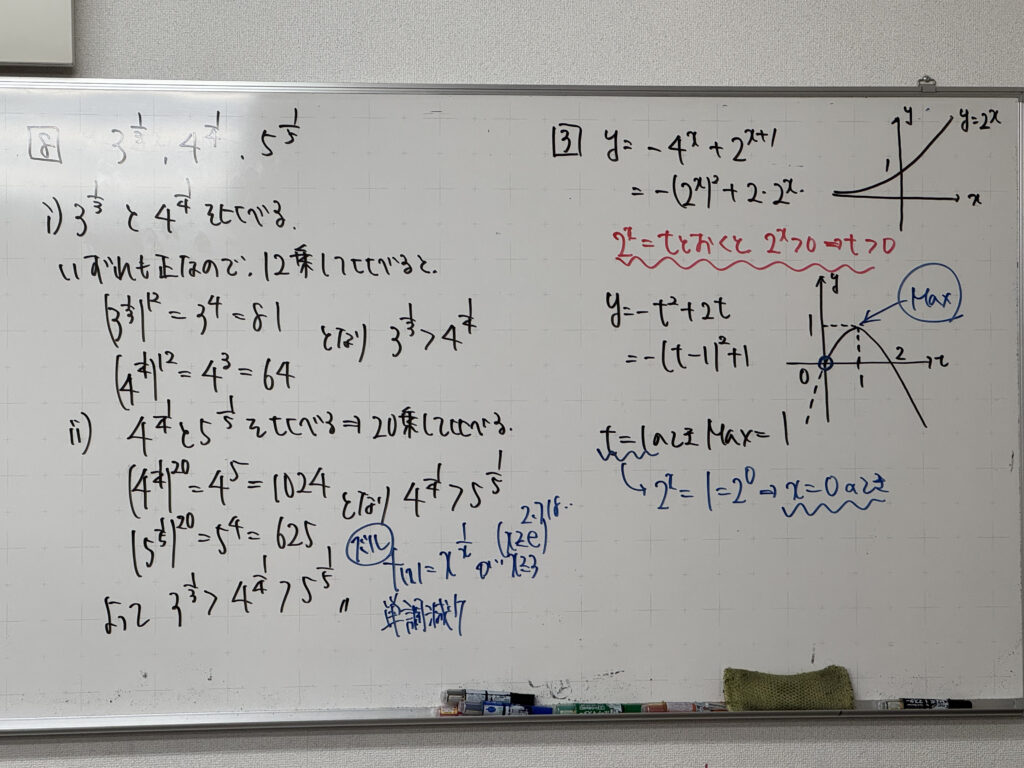 8 3^{1/3}, 4^{1/4}, 5^{1/5}
i) 3^{1/3} と 4^{1/4} をくらべる.
いずれも正なので, 12乗してくらべると.
(3^{1/3})^{12} = 3^4 = 81
(4^{1/4})^{12} = 4^3 = 64
となり 3^{1/3} > 4^{1/4}
ii) 4^{1/4} と 5^{1/5} をくらべる ⇒ 20乗してくらべる.
(4^{1/4})^{20} = 4^5 = 1024
(5^{1/5})^{20} = 5^4 = 625
となり 4^{1/4} > 5^{1/5}
よって 3^{1/3} > 4^{1/4} > 5^{1/5} 〃
2.718..
(x≧e)
f(x) = x^{1/x} x≧3
単調減少
3 y = -4^x + 2^{x+1}
= -(2^x)^2 + 2・2^x.
y
y=2^x
1
x
2^x = tとおくと 2^x>0 ⇒ t>0
y = -t^2 + 2t
= -(t-1)^2 + 1
y
Max
1
0 1 2 t
t=1のとき Max = 1
→ 2^x = 1 = 2^0 ⇒ x=0のとき